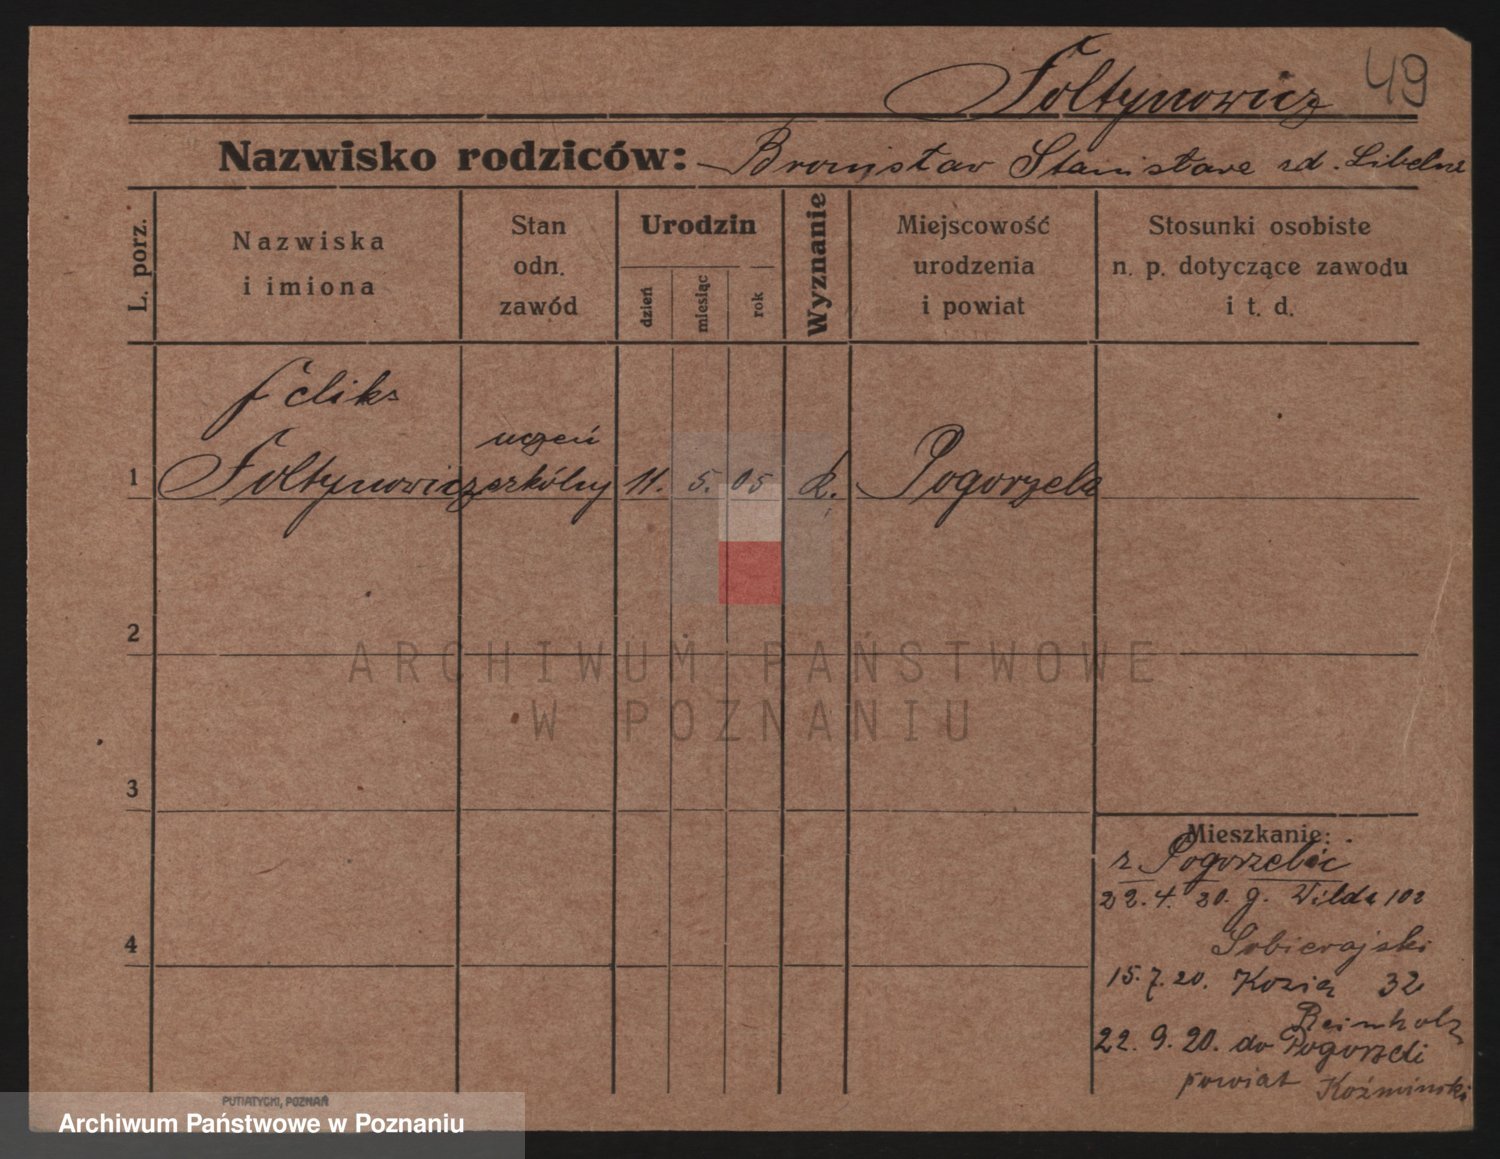 Foltynowicz 49
Nazwisko rodziców: Bronisław Stanisława zd. Libelne
L. porz.
Nazwiska
i imiona
Stan
odn.
zawód
Urodzin
dzień
miesiąc
rok
Wyznanie
Miejscowość
urodzenia
i powiat
Stosunki osobiste
n. p. dotyczące zawodu
i t. d.
Feliks
uczeń
1 Foltynowicz szkólny 11. 5. 05 k. Pogorzela
2
3
4
Mieszkanie:
z Pogorzelic
22. 4. 20. g. Wilda 102
Sobierajski
15. 7. 20. Kozia 32
Reinholz
22. 9. 20. do Pogorzeli
powiat Koźmiński
PUTIATYCKI, POZNAŃ
ARCHIWUM PAŃSTWOWE
W POZNANIU
Archiwum Państwowe w Poznaniu